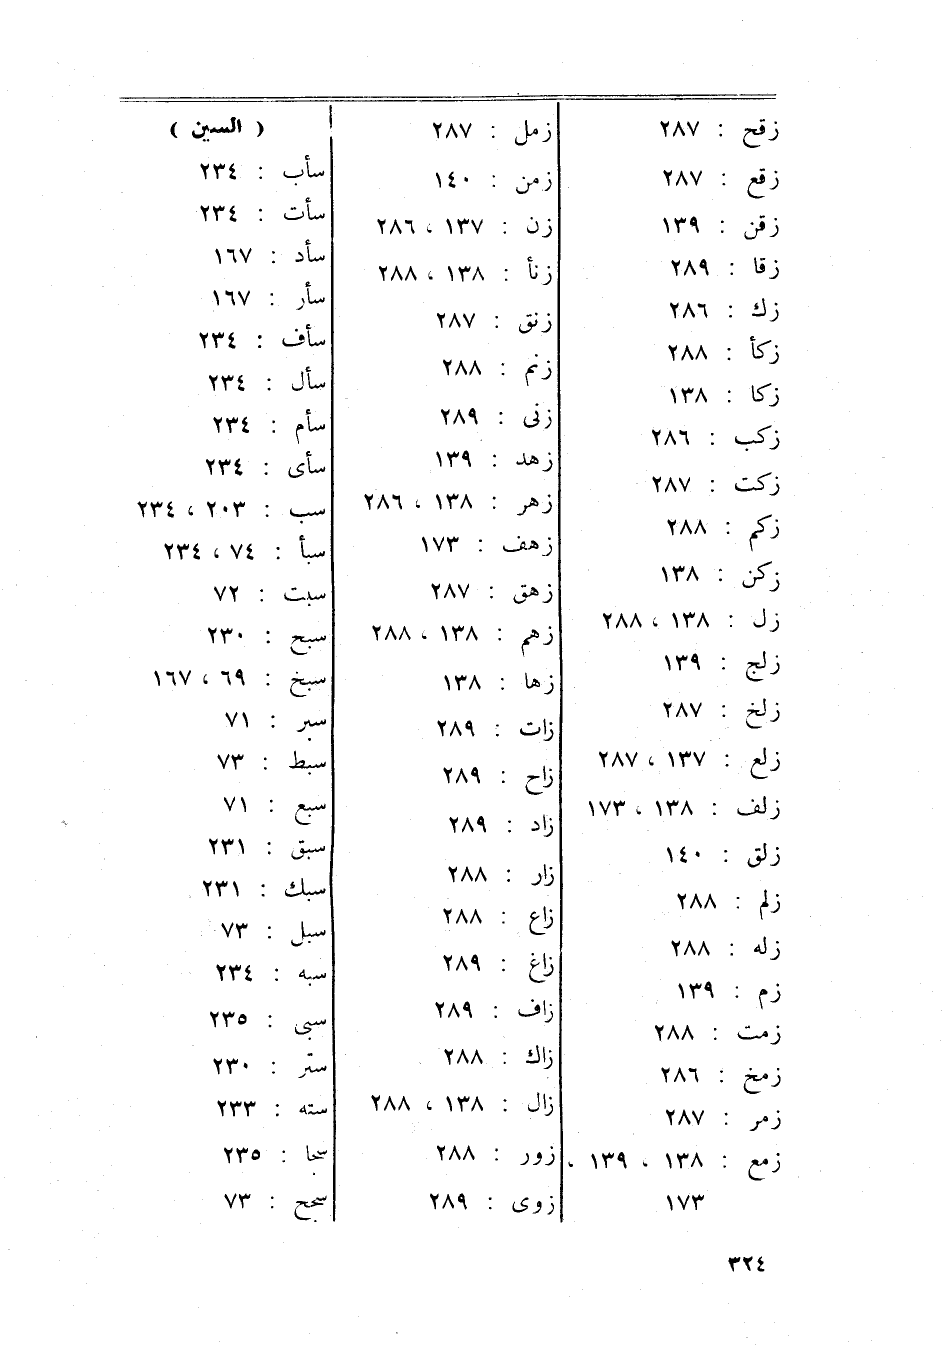 زقح : ٢٨٧
زقع : ٢٨٧
زقن : ١٣٩
زقا : ٢٨٩
زك : ٢٨٦
زكأ : ٢٨٨
زكا : ١٣٨
زكب : ٢٨٦
زكت : ٢٨٧
زكم : ٢٨٨
زكن : ١٣٨
زل : ١٣٨ ، ٢٨٨
زلج : ١٣٩
زلخ : ٢٨٧
زلع : ١٣٧ ، ٢٨٧
زلف : ١٣٨ ، ١٧٣
زلق : ١٤٠
زلم : ٢٨٨
زله : ٢٨٨
زم : ١٣٩
زمت : ٢٨٨
زمخ : ٢٨٦
زمر : ٢٨٧
زمع : ١٣٨ ، ١٣٩ ،
١٧٣
زمل : ٢٨٧
زمن : ١٤٠
زن : ١٣٧ ، ٢٨٦
زنأ : ١٣٨ ، ٢٨٨
زنق : ٢٨٧
زنم : ٢٨٨
زنى : ٢٨٩
زهد : ١٣٩
زهر : ١٣٨ ، ٢٨٦
زهف : ١٧٣
زهق : ٢٨٧
زهم : ١٣٨ ، ٢٨٨
زها : ١٣٨
زات : ٢٨٩
زاح : ٢٨٩
زاد : ٢٨٩
زار : ٢٨٨
زاع : ٢٨٨
زاغ : ٢٨٩
زاف : ٢٨٩
زاك : ٢٨٨
زال : ١٣٨ ، ٢٨٨
زور : ٢٨٨
زوى : ٢٨٩
( السين )
سأب : ٢٣٤
سأت : ٢٣٤
سأد : ١٦٧
سأر : ١٦٧
سأف : ٢٣٤
سأل : ٢٣٤
سأم : ٢٣٤
سأى : ٢٣٤
سب : ٢٠٣ ، ٢٣٤
سبأ : ٧٤ ، ٢٣٤
سبت : ٧٢
سبح : ٢٣٠
سبخ : ٦٩ ، ١٦٧
سبر : ٧١
سبط : ٧٣
سبع : ٧١
سبق : ٢٣١
سبك : ٢٣١
سبل : ٧٣
سبه : ٢٣٤
سبى : ٢٣٥
ستر : ٢٣٠
سته : ٢٣٣
سجا : ٢٣٥
سجح : ٧٣
٣٢٤